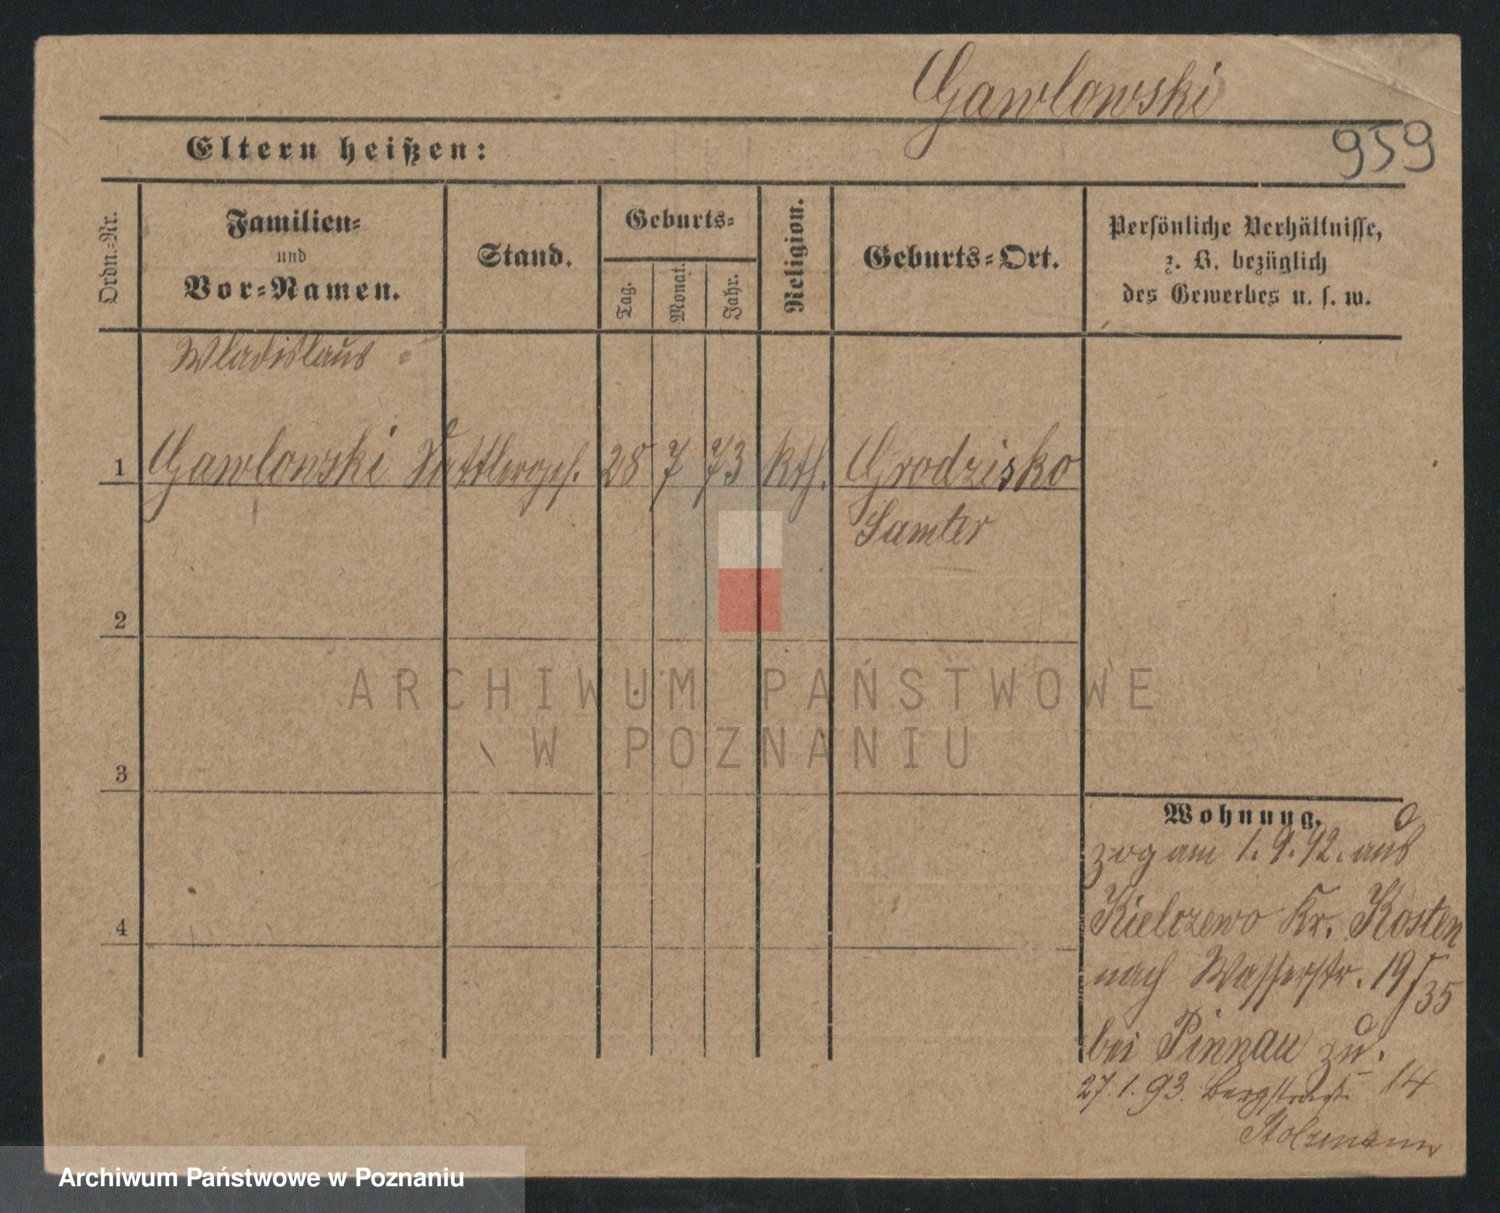 Gawlowski
959
Eltern heißen:
Ordn.-Nr.
Familien-
und
Vor-Namen.
Stand.
Geburts-
Tag.
Monat.
Jahr.
Religion.
Geburts-Ort.
Persönliche Verhältnisse,
z. B. bezüglich
des Gewerbes u. s. w.
Wladislaus
1 Gawlowski Sattlergeh. 28 7 73 kth. Grodzisko
Samter
2
3
4
ARCHIWUM PAŃSTWOWE
W POZNANIU
Wohnung.
zog am 1. 9. 92. aus
Kielczewo Kr. Kosten
nach Wasserstr. 19/35
bei Pinnau zu.
27. 1. 93. Bergstraße 14
Stolzmann
Archiwum Państwowe w Poznaniu